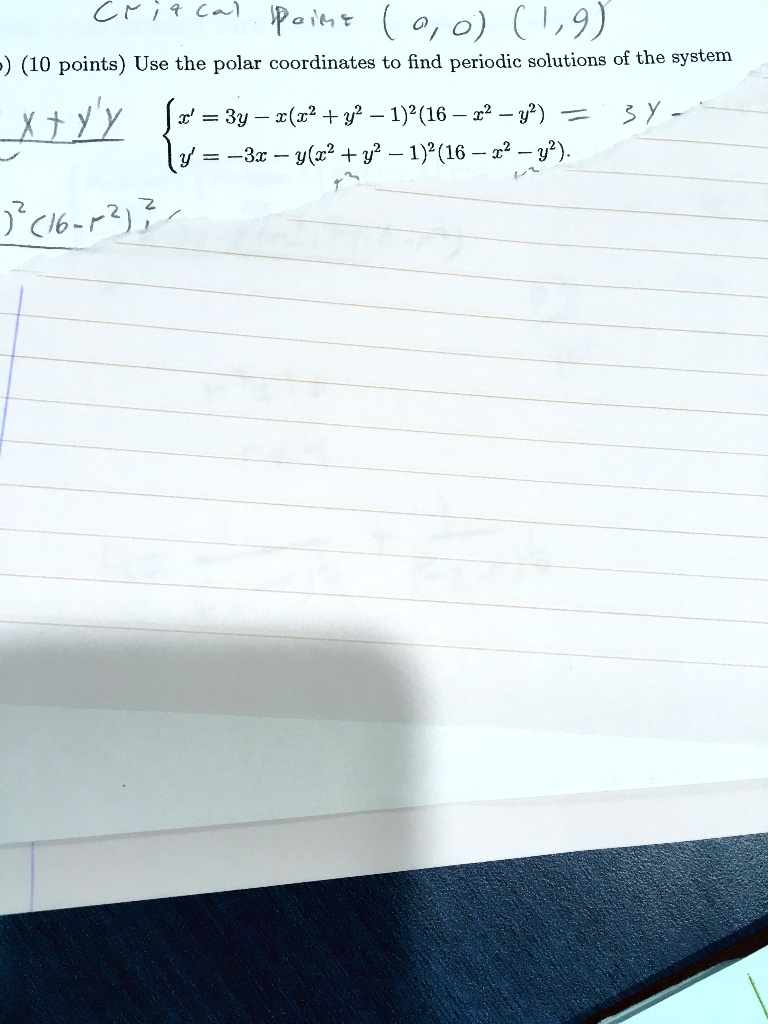 Critcal Point (0,0) (1,9)
) (10 points) Use the polar coordinates to find periodic solutions of the system
x+y'y
x' = 3y − x(x² + y² − 1)²(16 − x² − y²) = 3y -
y' = −3x − y(x² + y² − 1)²(16 − x² − y²).
r² r²
)²(16-r²)